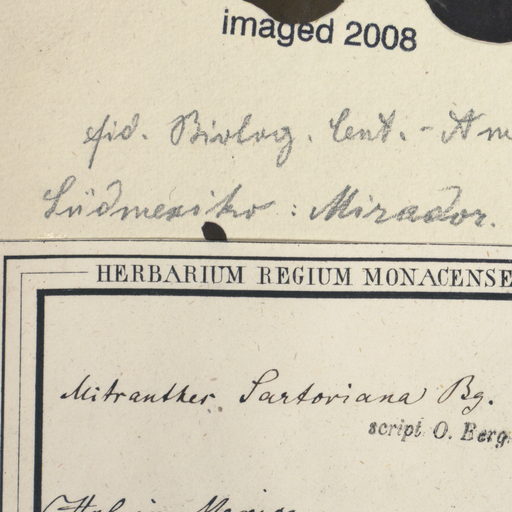 imaged 2008
fid. Biolog. Cent.-Am
Südmexiko: Mirador.
HERBARIUM REGIUM MONACENSE
Mitranthes Sartoriana Bg.
script. O. Berg